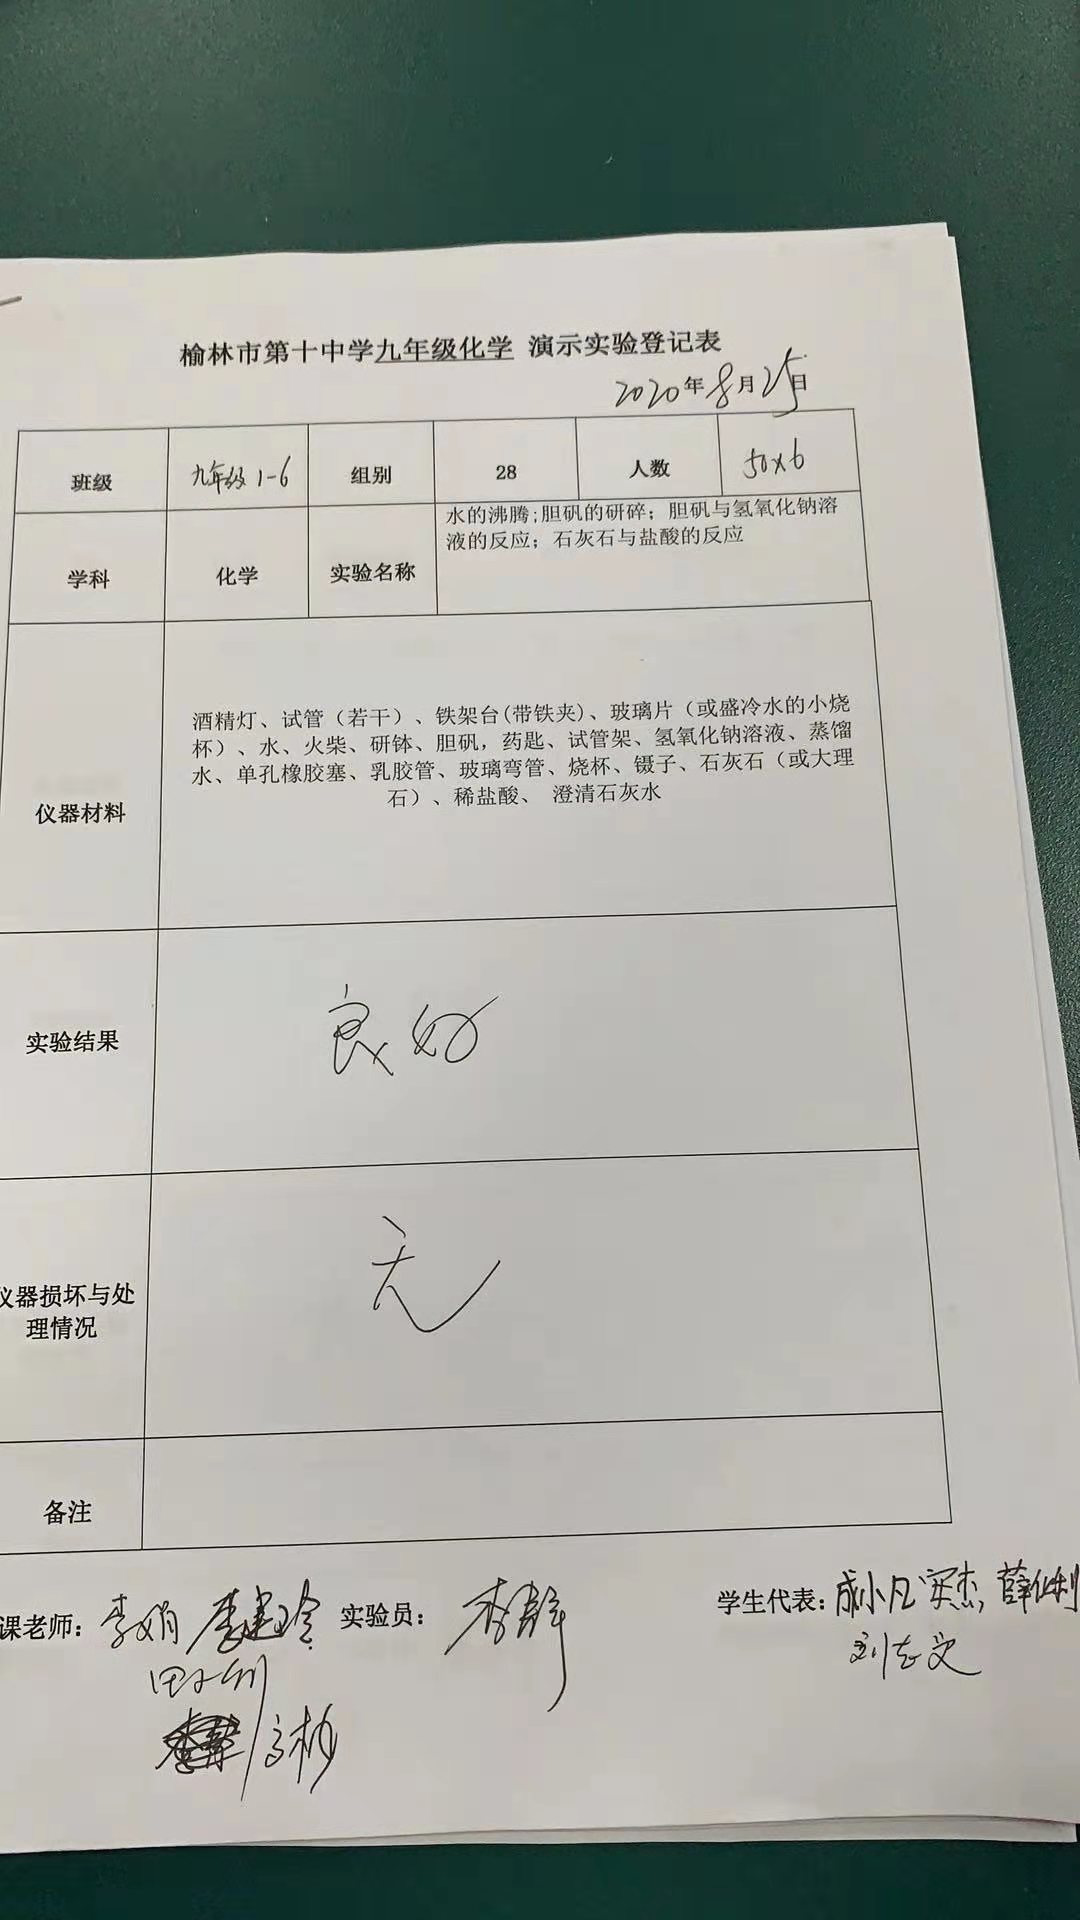 榆林市第十中学九年级化学 演示实验登记表
2020年8月25日
班级 九年级1-6 组别 28 人数 50×6
学科 化学 实验名称 水的沸腾;胆矾的研碎；胆矾与氢氧化钠溶
液的反应；石灰石与盐酸的反应
仪器材料
酒精灯、试管（若干）、铁架台(带铁夹)、玻璃片（或盛冷水的小烧
杯）、水、火柴、研钵、胆矾，药匙、试管架、氢氧化钠溶液、蒸馏
水、单孔橡胶塞、乳胶管、玻璃弯管、烧杯、镊子、石灰石（或大理
石）、稀盐酸、 澄清石灰水
实验结果 良好
仪器损坏与处
理情况
无
备注
课老师：李娟 实验员：李静 学生代表：成小凡
刘志文